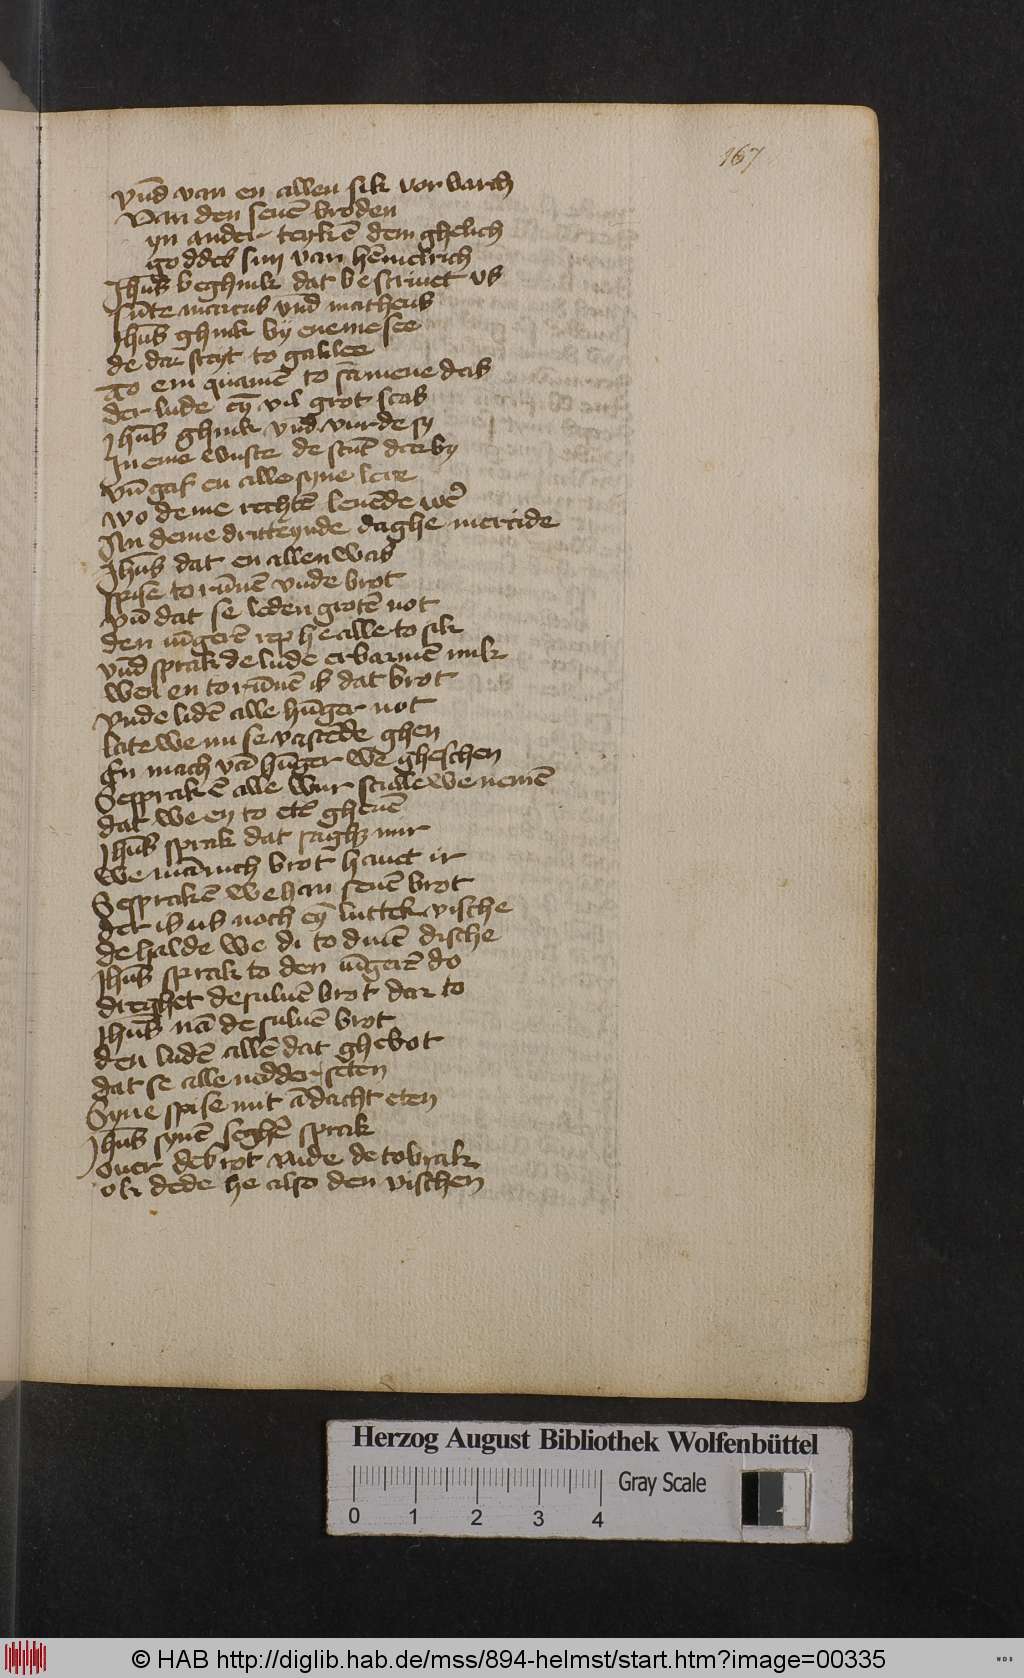 167
vnd̄ van en allen sik vor barch
Van den seuē broden
yn ander teykē dem ghelich
goddes sun van hēmelrich
Jhūs beghink dat bescriuet vs
sūte marcus vnd matheus
Jhūs ghink by eneme see
de dar steyt to galilee
to em quamē to samene das
der lude eȳ vil grot scas
Jhūs ghink vnd vurde sy
In eine wuste de stūt dar by
vn̄ gaf en alle syne lere
wo deme rechtē leuēde wer̄
An deme dritteynde daghe merkide
Jhūs dat en allen was
spise to rūnē vnde brot
vn̄ dat se leden grotē not
den iūgerē rep he alle to sik
vnd sprak de lude erbarmē mik
wen en to rūnē is dat brot
vnde lidē alle hūger not
late we nu se vastēde ghen
En mach vā hūger we gheschen
Se sprakē alle wur sculle we nemē
dat we en to etē gheuē
Jhūs sprak dat saghz mir
we mānich brot hauet ir
Se sprakē we han seuē brot
der is us noch eȳ luttek vische
de halde we di to dinē dische
Jhūs sprak to den iūgerē do
dreghet de suluē brot dar to
Jhūs nā de suluē brot
den ludē allē dat ghebot
dat se alle nedder seten
Syne spise mit ādacht eten
Jhūs synē seghē sprak
ouer de brot vnde de tobrak
ok dede he also den vischen
Herzog August Bibliothek Wolfenbüttel
Gray Scale
0 1 2 3 4
© HAB http://diglib.hab.de/mss/894-helmst/start.htm?image=00335